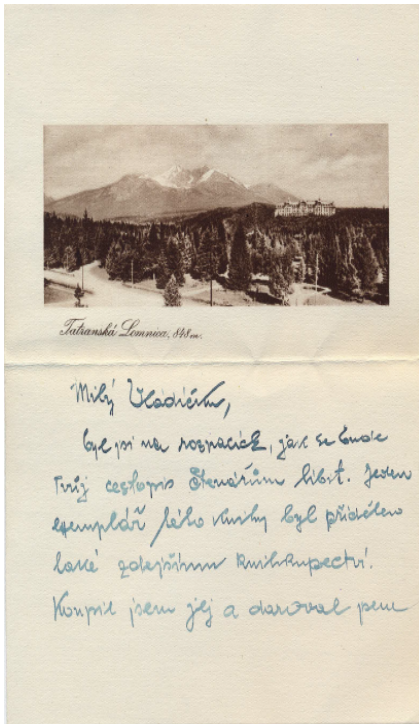 Tatranská Lomnica, 848 m.
Milý Vládíčku,
byl jsi na rozpacích, jak se bude
Tvůj cestopis čtenářům líbit. Jeden
exemplář této knihy byl přidělen
také zdejšímu knihkupectví.
Koupil jsem jej a daroval jsem